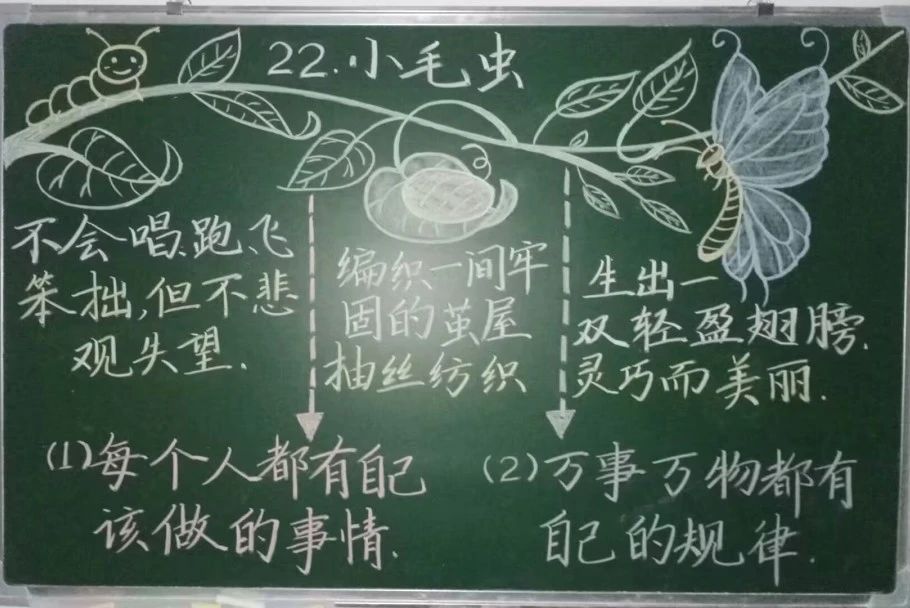 22.小毛虫
不会唱、跑、飞
笨拙,但不悲
观失望.
编织一间牢
固的茧屋
抽丝纺织
生出一
双轻盈翅膀.
灵巧而美丽.
(1)每个人都有自己
该做的事情.
(2)万事万物都有
自己的规律.